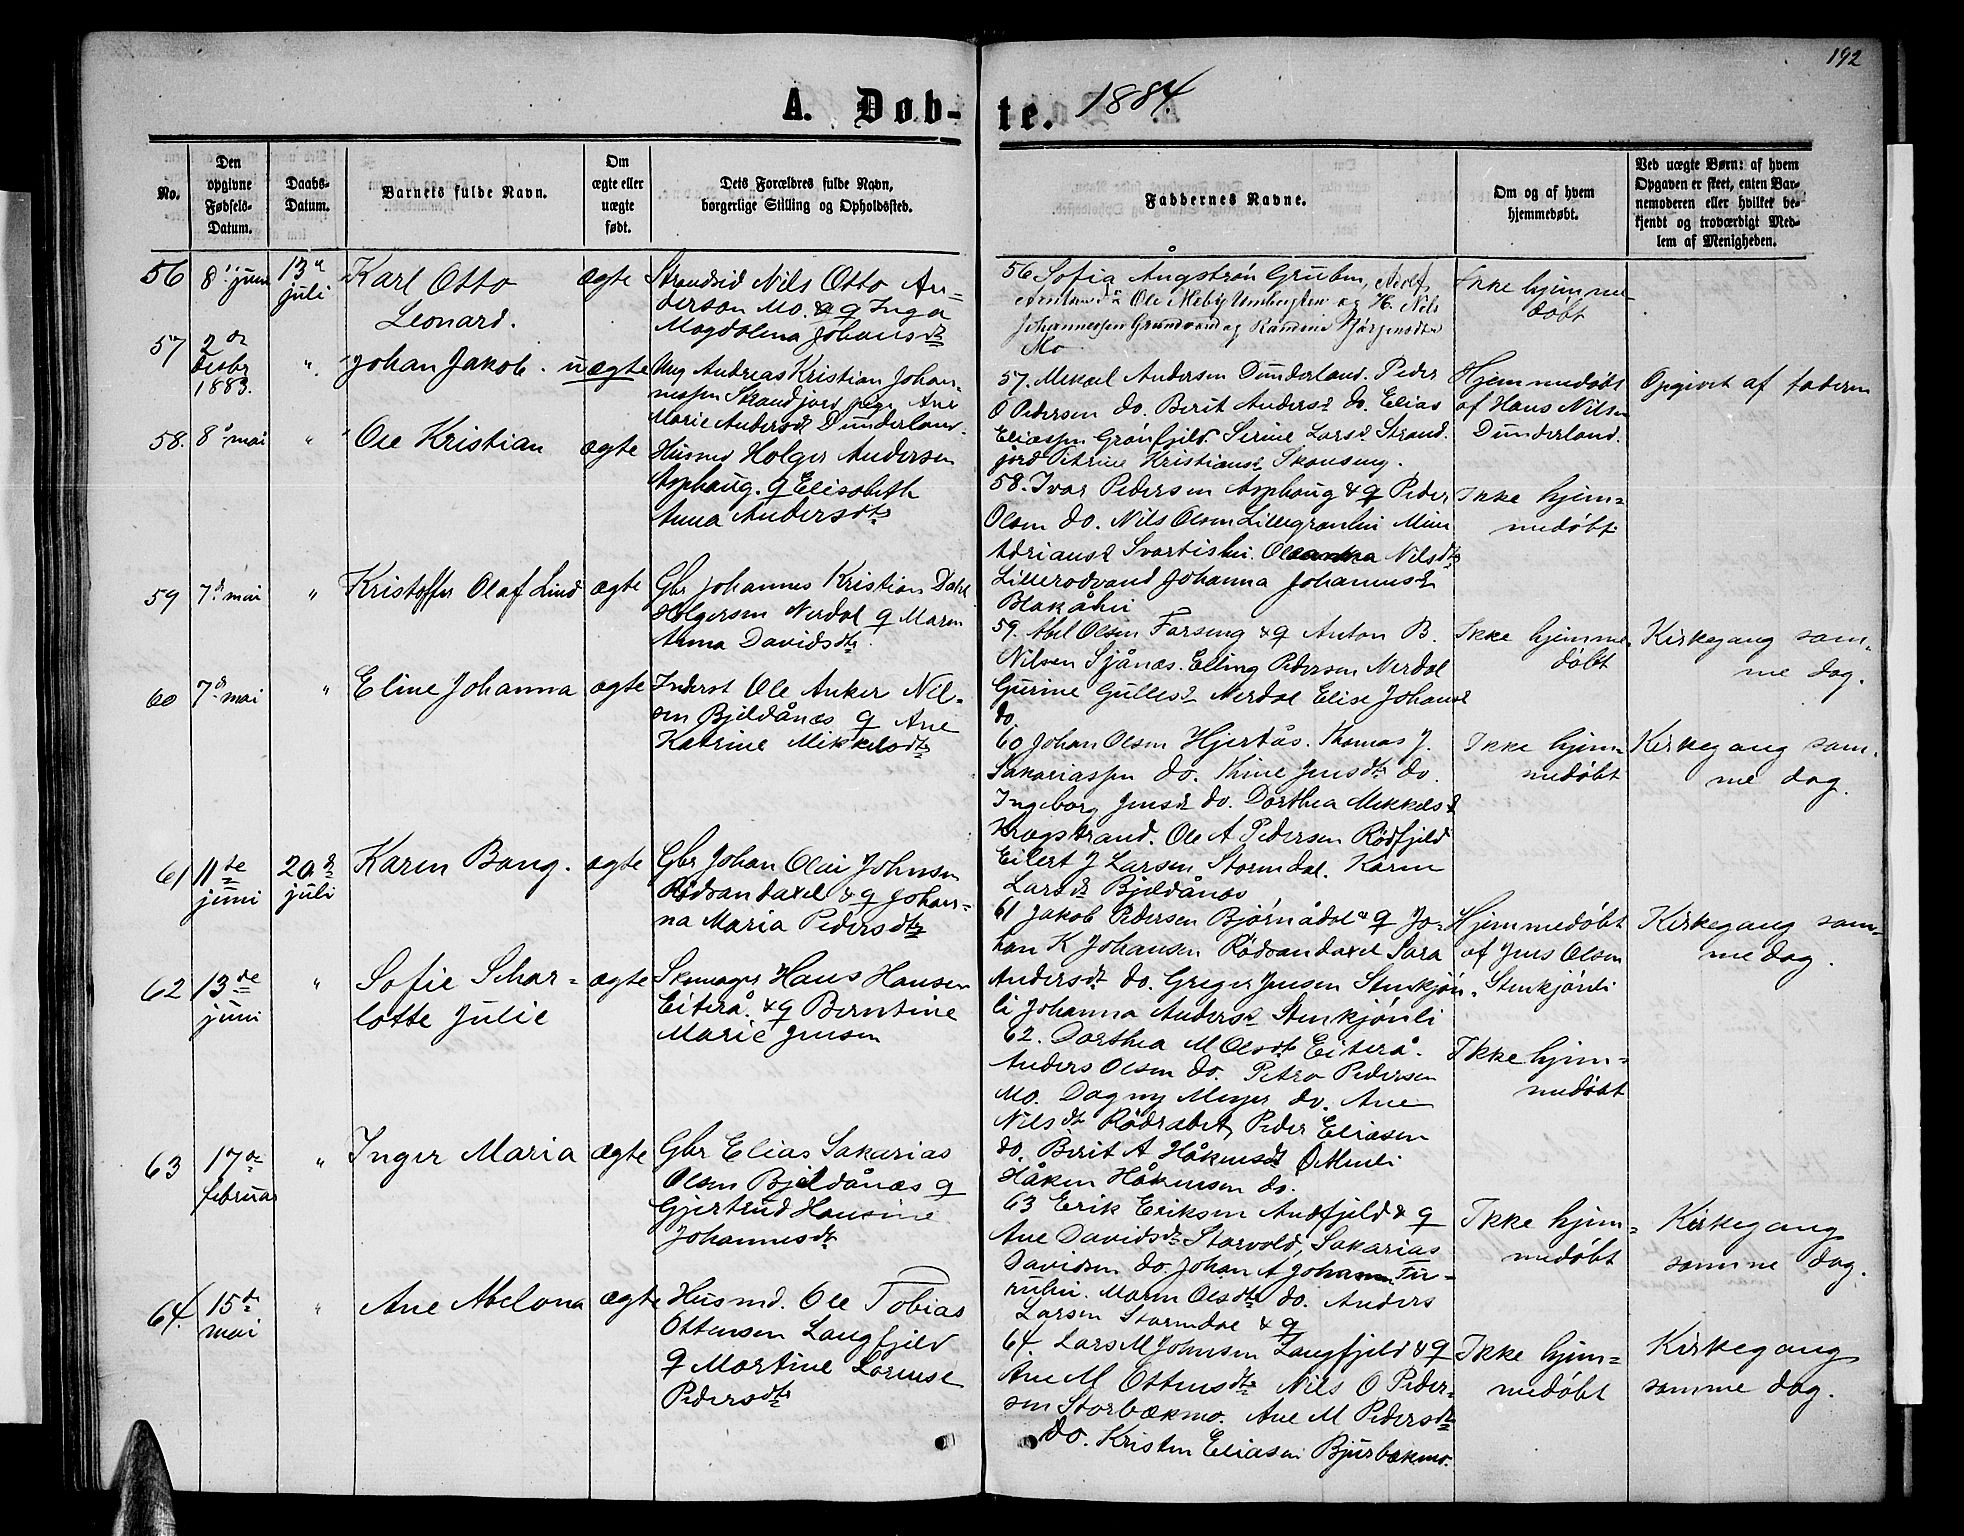 192
A. Døb-
te. 1884.
No.
Den opgivne Fødsels-Datum.
Daabs-Datum.
Barnets fulde Navn.
Om ægte eller uægte født.
Dets Forældres fulde Navn, borgerlige Stilling og Opholdssted.
Faddernes Navne.
Om og af hvem hjemmedøbt.
Ved uægte Børn: af hvem Opgaven er skeet, enten Barnemoderen eller hvilket bekjendt og troværdigt Medlem af Menigheden.
56
8 juni
13 juli
Karl Otto
Leonard.
ægte
Strandsid Nils Otto An-
derson Mo. & q Inga
Magdalena Johansdtr
56 Sofia Ångstrøn Gruben, Adolf
Ole Moby Umbugten og H. Nils
Johannessen Grundvand og Jørgensdtr
Mo
Ikke hjemme-
døbt
57
2 desbr
1883.
"
Johan Jakob.
uægte
Ung Andreas Kristian Johan-
nessen Strandjord pige Ane
Marie Andersd Dunderland.
57. Mikael Andersen Dunderland. Peder
O Pedersen do. Berit Andersd do. Elias
Eliassen Grønfjeld. Serine Larsd Strand-
jord Petrine Kristiansd Skonseng.
Hjemmedøbt
af Hans Nilsen
Dunderland.
Opgivet af faderen
58.
8 mai
"
Ole Kristian
ægte
Husmd Holger Andersen
Asphaug. q Elisabeth
Anna Andersdtr
58. Ivar Pedersen Asphaug & q Peder
Olsen do. Nils Olsen Lillegrønli
Adriansd Svartisli. Nilsdtr
Johanna Johannesd
Blakåli
Ikke hjem=
medøbt
59
7 mai
"
Kristoffer Olaf Lind
ægte
Gbr Johannes Kristian Dahl
Holgersen Nerdal q Maren
Anna Davidsdtr.
59. Abel Olsen Forseng & q Anton B.
Nilsen Sjånæs. Elling Pedersen Nerdal
Gurine Gullesd Nerdal Elise Johansd
do.
Ikke hjemme-
døbt
Kirkegang sam-
me dag.
60
7 mai
"
Eline Johanna
ægte
Inderst Ole Anker Nil-
sen Bjeldånæs q Ane
Katrine Mikkelsdtr
60 Johan Olsen Hjertås. Thomas J.
Sakariassen do. Thine Jensdtr do.
Ingeborg Jensd do. Dorthea Mikkelsd
Krogstrand. Ole A Pedersen Rødfjeld
Eilert J Larsen Stormdal. Karen
Larsdtr Bjeldånæs
Ikke hjem
medøbt
Kirkegang sam-
me dag.
61
11te
juni
20d
juli
Karen Bang.
ægte
Gbr Johan Olai Johnsen
Rødvandaxel & q Johan=
na Maria Pedersdtr
61 Jakob Pedersen Bjørnådal & q Jo-
han K Johansen Rødvandaxel Sara
Andersdtr do. Greger Jensen Stenkjøn-
li Johanna Andersd Stenkjønli
Hjemmedøbt
af Jens Olsen
Stenkjønli
Kirkegang sam-
me dag.
62
13de
juni
"
Sofie Schar=
lotte Julie
ægte
Skomager Hans Hansen
Eiterå. & q Berntine
Marie Jensen
62. Dorthea M Olsdtr Eiterå.
Anders Olsen do. Petra Pedersen
Mo. Dagny Meyer do. Ane
Nilsdtr Peder Eliasen
do. Berit A Håkensdtr
Håken Håkensen do.
Ikke hjem=
medøbt
63
17de
februar
"
Inger Maria
ægte
Gbr Elias Sakarias
Olsen Bjeldånæs q
Gjertrud Hansine
Johannesdtr
63 Erik Eriksen Andfjeld & q
Ane Davidsdtr Storvold, Sakarias
Davidsen do. Johan A Johansen Fu-
ruhei. Maren Olsdtr do. Anders
Larsen Stormdal & q
Ikke hjem=
medøbt
Kirkegang
samme dag.
64.
15de
mai
"
Ane Abelona
ægte
Husmd. Ole Tobias
Ottensen Langfjeld
q Martine Lorense
Pedersdtr
64. Lars M Johnsen Langfjeld & q
Ane M Ottensdtr Nils O Peder-
sen Storbækmo. Ane M Pedersdtr
do. Kristen Eliasen Bjurbækmo.
Ikke hjem=
medøbt
Kirkegang
samme dag.